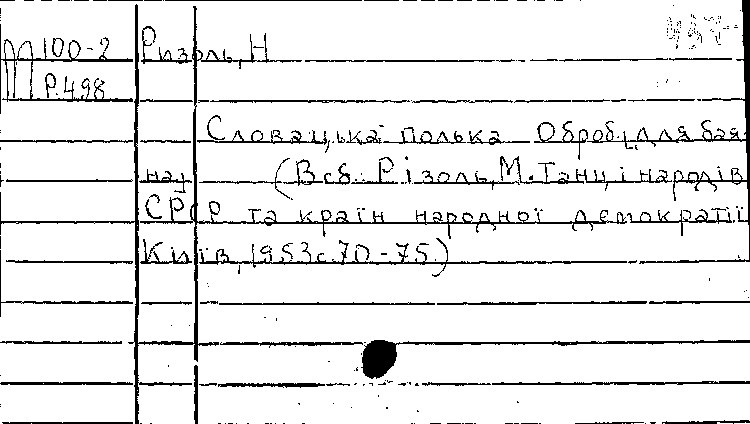 П 100-2 Ризоль, Н
Р.498
Словацька полька Оброб. для бая-
на, (В сб. Різоль, М. Танці народів
СРСР та країн народної демократії
Київ, 1953 с. 70-75)